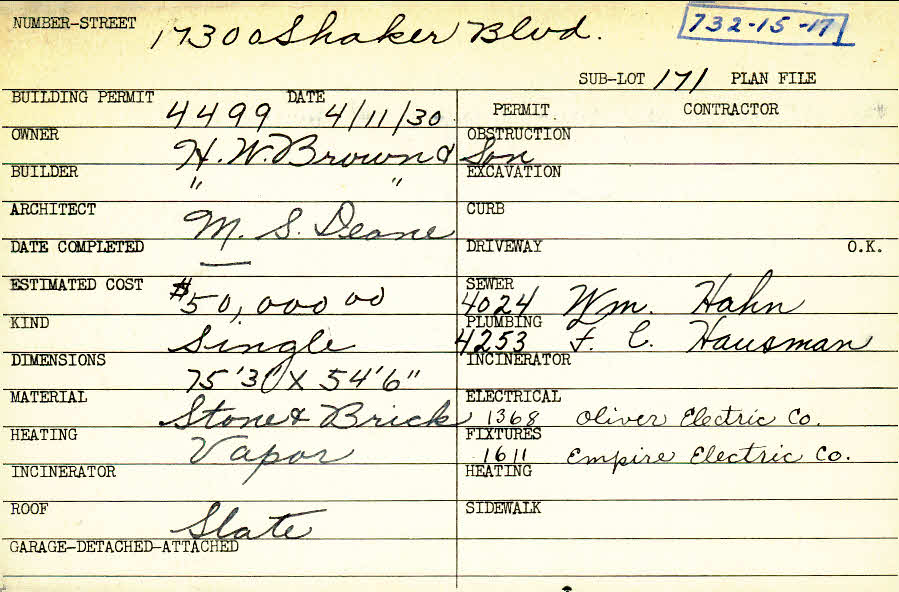 NUMBER-STREET 17300 Shaker Blvd. 732-15-17
SUB-LOT 171 PLAN FILE
BUILDING PERMIT 4499 DATE 4/11/30 PERMIT CONTRACTOR
OWNER H. W. Brown & Son OBSTRUCTION
BUILDER " " EXCAVATION
ARCHITECT M. S. Deane CURB
DATE COMPLETED — DRIVEWAY O.K.
ESTIMATED COST $50,000 00 SEWER 4024 Wm. Hahn
KIND Single PLUMBING 4253 F. C. Hausman
DIMENSIONS 75'3" X 54'6" INCINERATOR
MATERIAL Stone & Brick ELECTRICAL 1368 Oliver Electric Co.
HEATING Vapor FIXTURES 1611 Empire Electric Co.
INCINERATOR HEATING
ROOF Slate SIDEWALK
GARAGE-DETACHED-ATTACHED